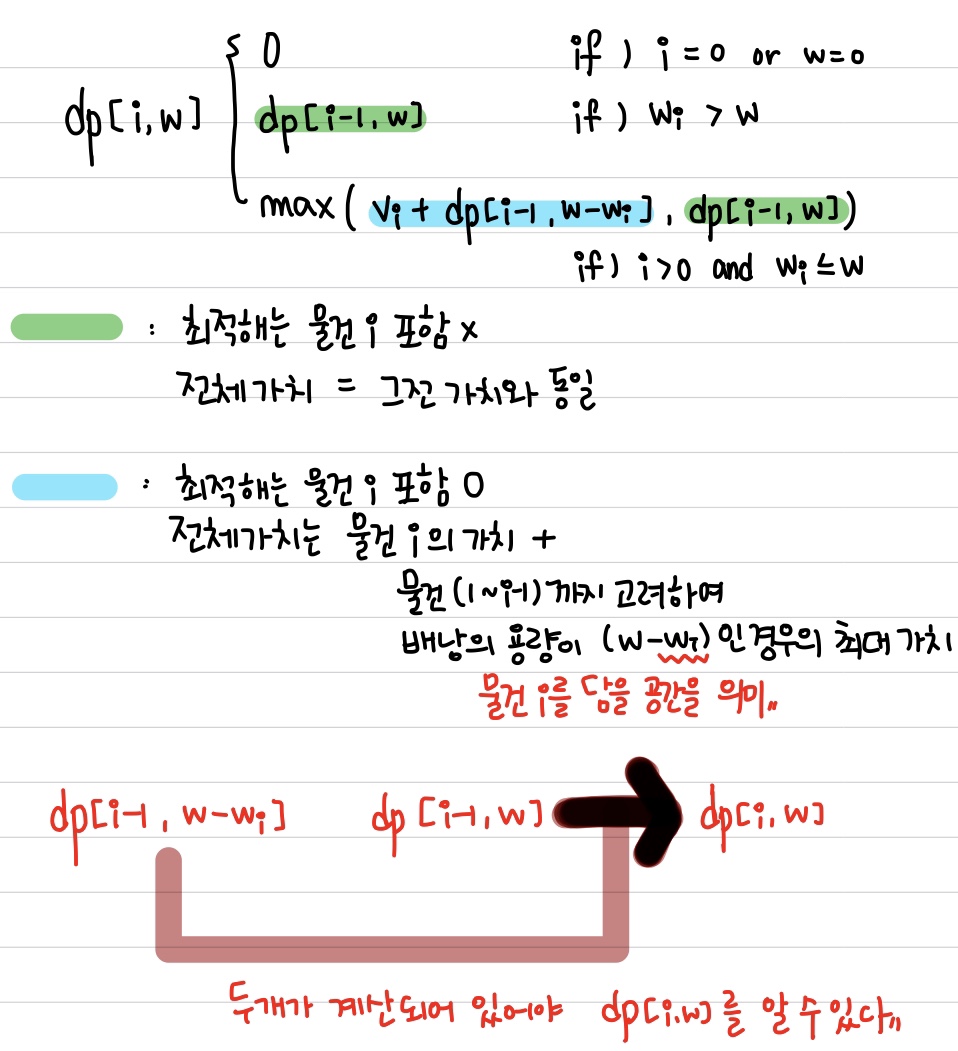 0 if) i=0 or w=0
dp[i,w] dp[i-1,w] if) wi > w
max( vi + dp[i-1, w-wi], dp[i-1,w])
if) i>0 and wi≤w
: 최적해는 물건 i 포함 x
전체가치 = 그전 가치와 동일
: 최적해는 물건 i 포함 O
전체가치는 물건 i의 가치 +
물건 (1~i-1)까지 고려하여
배낭의 용량이 (w-wi)인경우의 최대 가치
물건 i를 담을 공간을 의미〃
dp[i-1, w-wi] dp[i-1,w] dp[i,w]
두개가 계산되어 있어야 dp[i.w]를 알 수 있다〃